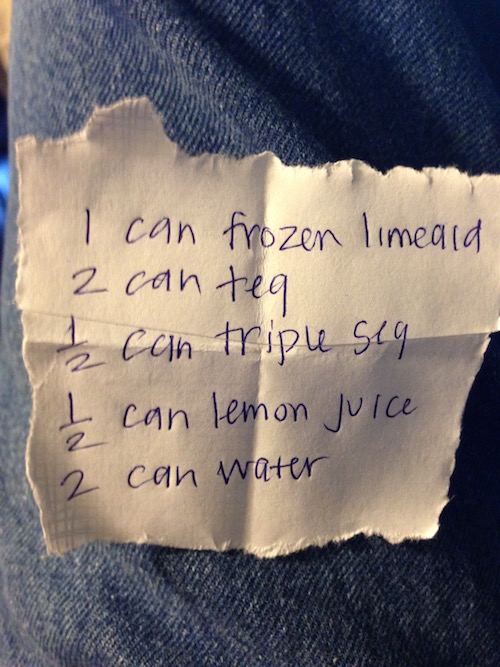 1 can frozen limeaid
2 can teq
1/2 can triple seq
1/2 can lemon juice
2 can water